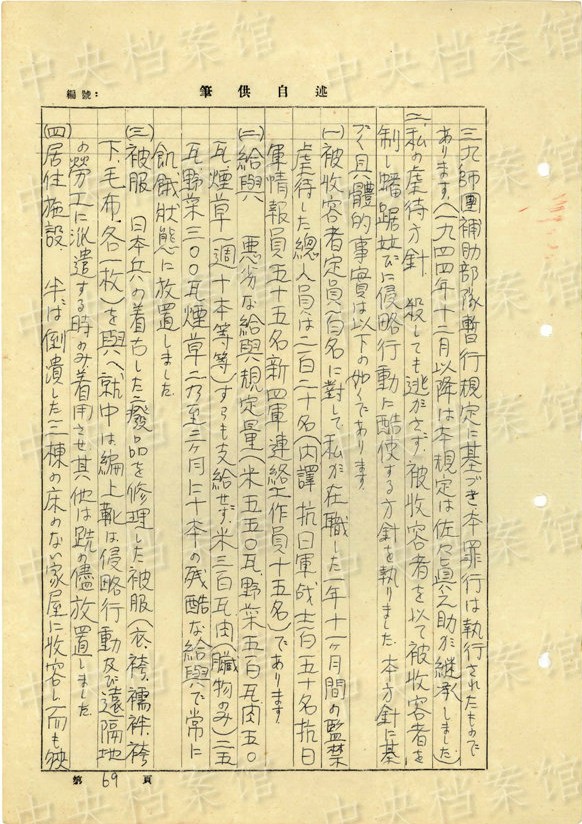 中央档案馆
編號：
述自供筆
三九師團補助部隊暫行規定に基づき本罪行は執行されたもので
あります（一九四四年十二月以降は本規定は佐々眞之助が継承しました）
二 私の虐待方針 殺しても逃がさず、被收容者を以て被收容者を
制し蟠踞並びに侵略行動に酷使する方針を執りました．本方針に基
づく具體的事實は以下の如くであります．
(一) 被收容者定員（百名）に対して私が在職した一年十一ヶ月間の監禁
虐待した總人員は二百二十名（內譯抗日軍战士百五十名抗日
軍情報員五十五名新四軍連絡工作員十五名）であります．
(二) 給與 悪劣な給與規定量（米五五〇瓦．野菜五百瓦肉五〇
瓦．煙草（一週一十本等等）すらも支給せず．米三百瓦肉（臟物のみ）二五
瓦野菜三〇〇瓦煙草二乃至三ヶ月に十本の残酷な給與で常に
飢餓狀態に放置しました
(三) 被服 日本兵の着古した廢品を修理した被服（衣．袴．襦袢．袴
下．毛布．各一枚）を與へ就中は編上靴は侵略行動及び遠隔地
の勞工に派遣する時のみ着用させ其他は跣の儘放置しました
(四) 居住施設． 半ば倒潰した三棟の床のない家屋に收容し而も狹
第 69 頁